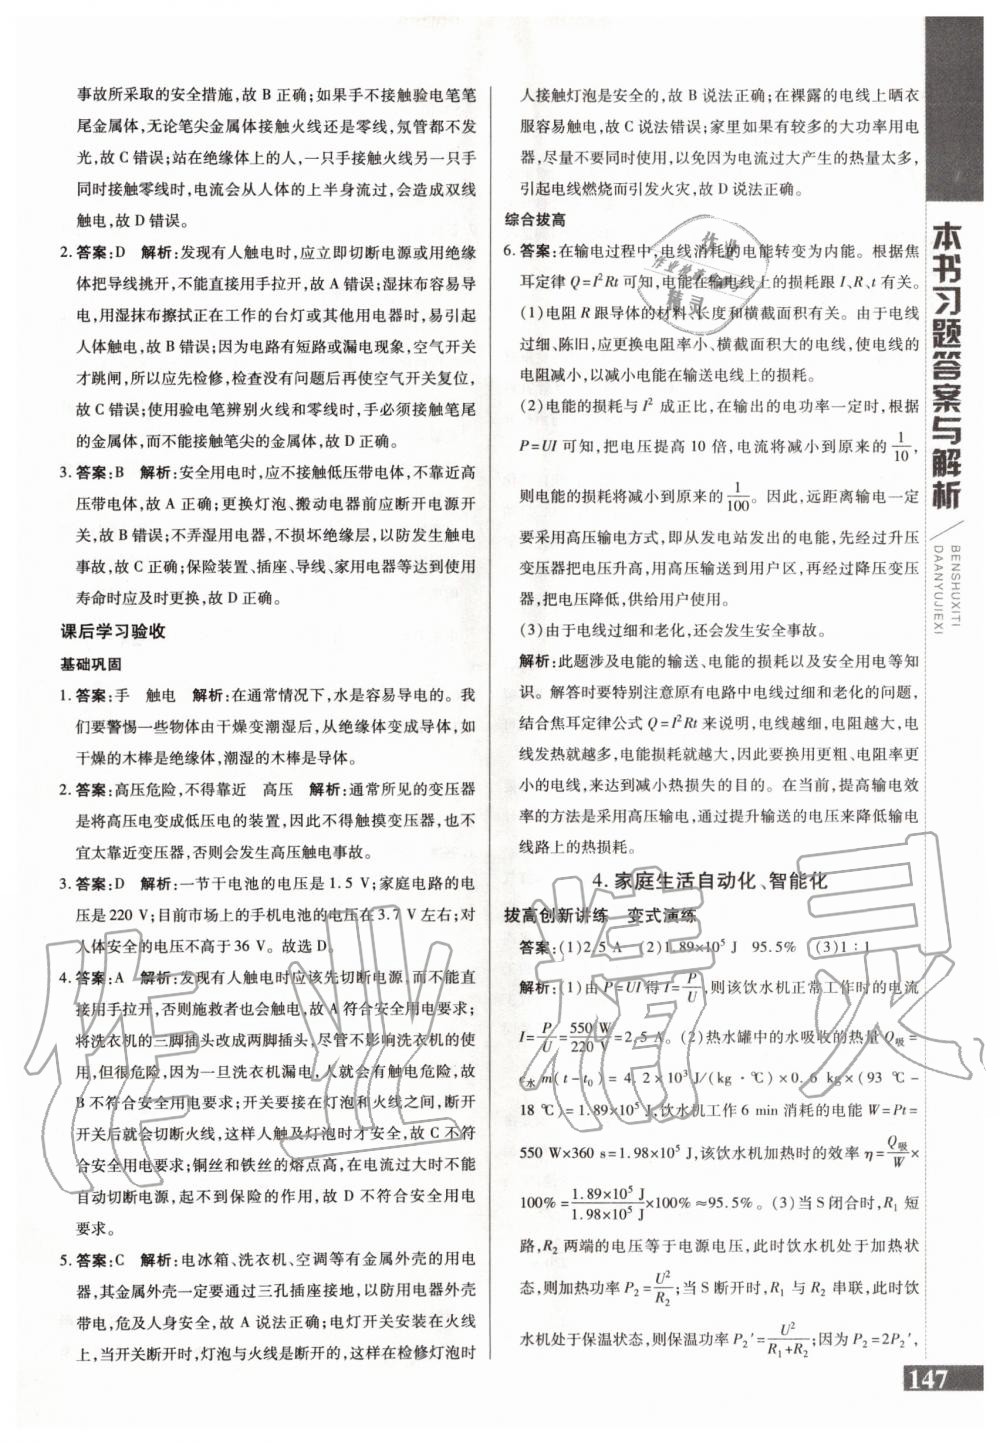 事故所采取的安全措施,故 B 正确;如果手不接触验电笔笔
尾金属体,无论笔尖金属体接触火线还是零线,氖管都不发
光,故 C 错误;站在绝缘体上的人,一只手接触火线另一只手
同时接触零线时,电流会从人体的上半身流过,会造成双线
触电,故 D 错误。
2. 答案:D 解析:发现有人触电时,应立即切断电源或用绝缘
体把导线挑开,不能直接用手拉开,故 A 错误;湿抹布容易导
电,用湿抹布擦拭正在工作的台灯或其他用电器时,易引起
人体触电,故 B 错误;因为电路有短路或漏电现象,空气开关
才跳闸,所以应先检修,检查没有问题后再使空气开关复位,
故 C 错误;使用验电笔辨别火线和零线时,手必须接触笔尾
的金属体,而不能接触笔尖的金属体,故 D 正确。
3. 答案:B 解析:安全用电时,应不接触低压带电体,不靠近高
压带电体,故 A 正确;更换灯泡、搬动电器前应断开电源开
关,故 B 错误;不弄湿用电器,不损坏绝缘层,以防发生触电
事故,故 C 正确;保险装置、插座、导线、家用电器等达到使用
寿命时应及时更换,故 D 正确。
课后学习验收
基础巩固
1. 答案:手 触电 解析:在通常情况下,水是容易导电的。我
们要警惕一些物体由干燥变潮湿后,从绝缘体变成导体,如
干燥的木棒是绝缘体,潮湿的木棒是导体。
2. 答案:高压危险,不得靠近 高压 解析:通常所见的变压器
是将高压电变成低压电的装置,因此不得触摸变压器,也不
宜太靠近变压器,否则会发生高压触电事故。
3. 答案:D 解析:一节干电池的电压是 1.5 V;家庭电路的电
压是 220 V;目前市场上的手机电池的电压在 3.7 V 左右;对
人体安全的电压不高于 36 V。故选 D。
4. 答案:A 解析:发现有人触电时应该先切断电源,而不能直
接用手拉开,否则施救者也会触电,故 A 符合安全用电要求;
将洗衣机的三脚插头改成两脚插头,尽管不影响洗衣机的使
用,但很危险,因为一旦洗衣机漏电,人就会有触电危险,故
B 不符合安全用电要求;开关要接在灯泡和火线之间,断开
开关后就会切断火线,这样人触及灯泡时才安全,故 C 不符
合安全用电要求;铜丝和铁丝的熔点高,在电流过大时不能
自动切断电源,起不到保险的作用,故 D 不符合安全用电
要求。
5. 答案:C 解析:电冰箱、洗衣机、空调等有金属外壳的用电
器,其金属外壳一定要通过三孔插座接地,以防用电器外壳
带电,危及人身安全,故 A 说法正确;电灯开关安装在火线
上,当开关断开时,灯泡与火线是断开的,这样在检修灯泡时
人接触灯泡是安全的,故 B 说法正确;在裸露的电线上晒衣
服容易触电,故 C 说法错误;家里如果有较多的大功率用电
器,尽量不要同时使用,以免因为电流过大产生的热量太多,
引起电线燃烧而引发火灾,故 D 说法正确。
综合拔高
6. 答案:在输电过程中,电线消耗的电能转变为内能。根据焦
耳定律 Q=I²Rt 可知,电能在输电线上的损耗跟 I、R、t 有关。
(1)电阻 R 跟导体的材料、长度和横截面积有关。由于电线
过细、陈旧,应更换电阻率小、横截面积大一些的电线,电线
的电阻减小,以减小电能在输送电线上的损耗。
(2)电能的损耗与 I² 成正比,在输出的电功率一定时,根据
P=UI 可知,把电压提高 10 倍,电流将减小到原来的 1/10,
则电能的损耗将减小到原来的 1/100。因此,远距离输电一定
要采用高压输电方式,即从发电站发出的电能,先经过升压
变压器把电压升高,用高压输送到用户区,再经过降压变压
器,把电压降低,供给用户使用。
(3)由于电线过细和老化,还会发生安全事故。
解析:此题涉及电能的输送、电能的损耗以及安全用电等知
识。解答时要特别注意原有电路中电线过细和老化的问题,
结合焦耳定律公式 Q=I²Rt 来说明,电线越细,电阻越大,电
线发热就越多,电能损耗就越大,因此要换用更粗、电阻率更
小的电线,来达到减小热损失的目的。在当今,提高输电效
率的方法是采用高压输电,通过提升输送的电压来降低输电
线路上的热损耗。
4. 家庭生活自动化、智能化
拔高创新讲练 变式演练
答案:(1)2.5 A (2)1.89×10⁵ J 95.5% (3)1∶1
解析:(1)由 P=UI 得 I=P/U,则该饮水机正常工作时的电流
I=P/U=550 W/220 V=2.5 A。(2)热水罐中的水吸收的热量 Q吸=
c水m(t-t₀)=4.2×10³ J/(kg·℃)×0.6 kg×(93 ℃-
18 ℃)=1.89×10⁵ J,饮水机工作 6 min 消耗的电能 W=Pt=
550 W×360 s=1.98×10⁵ J,该饮水机加热时的效率 η=Q吸/W×
100%=1.89×10⁵ J/1.98×10⁵ J×100%≈95.5%。(3)当 S 闭合时,R₁ 短
路,R₂ 两端的电压等于电源电压,此时饮水机处于加热状
态,则加热功率 P₂=U²/R₂;当 S 断开时,R₁ 与 R₂ 串联,此时饮
水机处于保温状态,则保温功率 P₂′=U²/(R₁+R₂);因为 P₂=2P₂′,
本书习题答案与解析
BENSHUXITI
DAANYUJIEXI
147
作业精灵